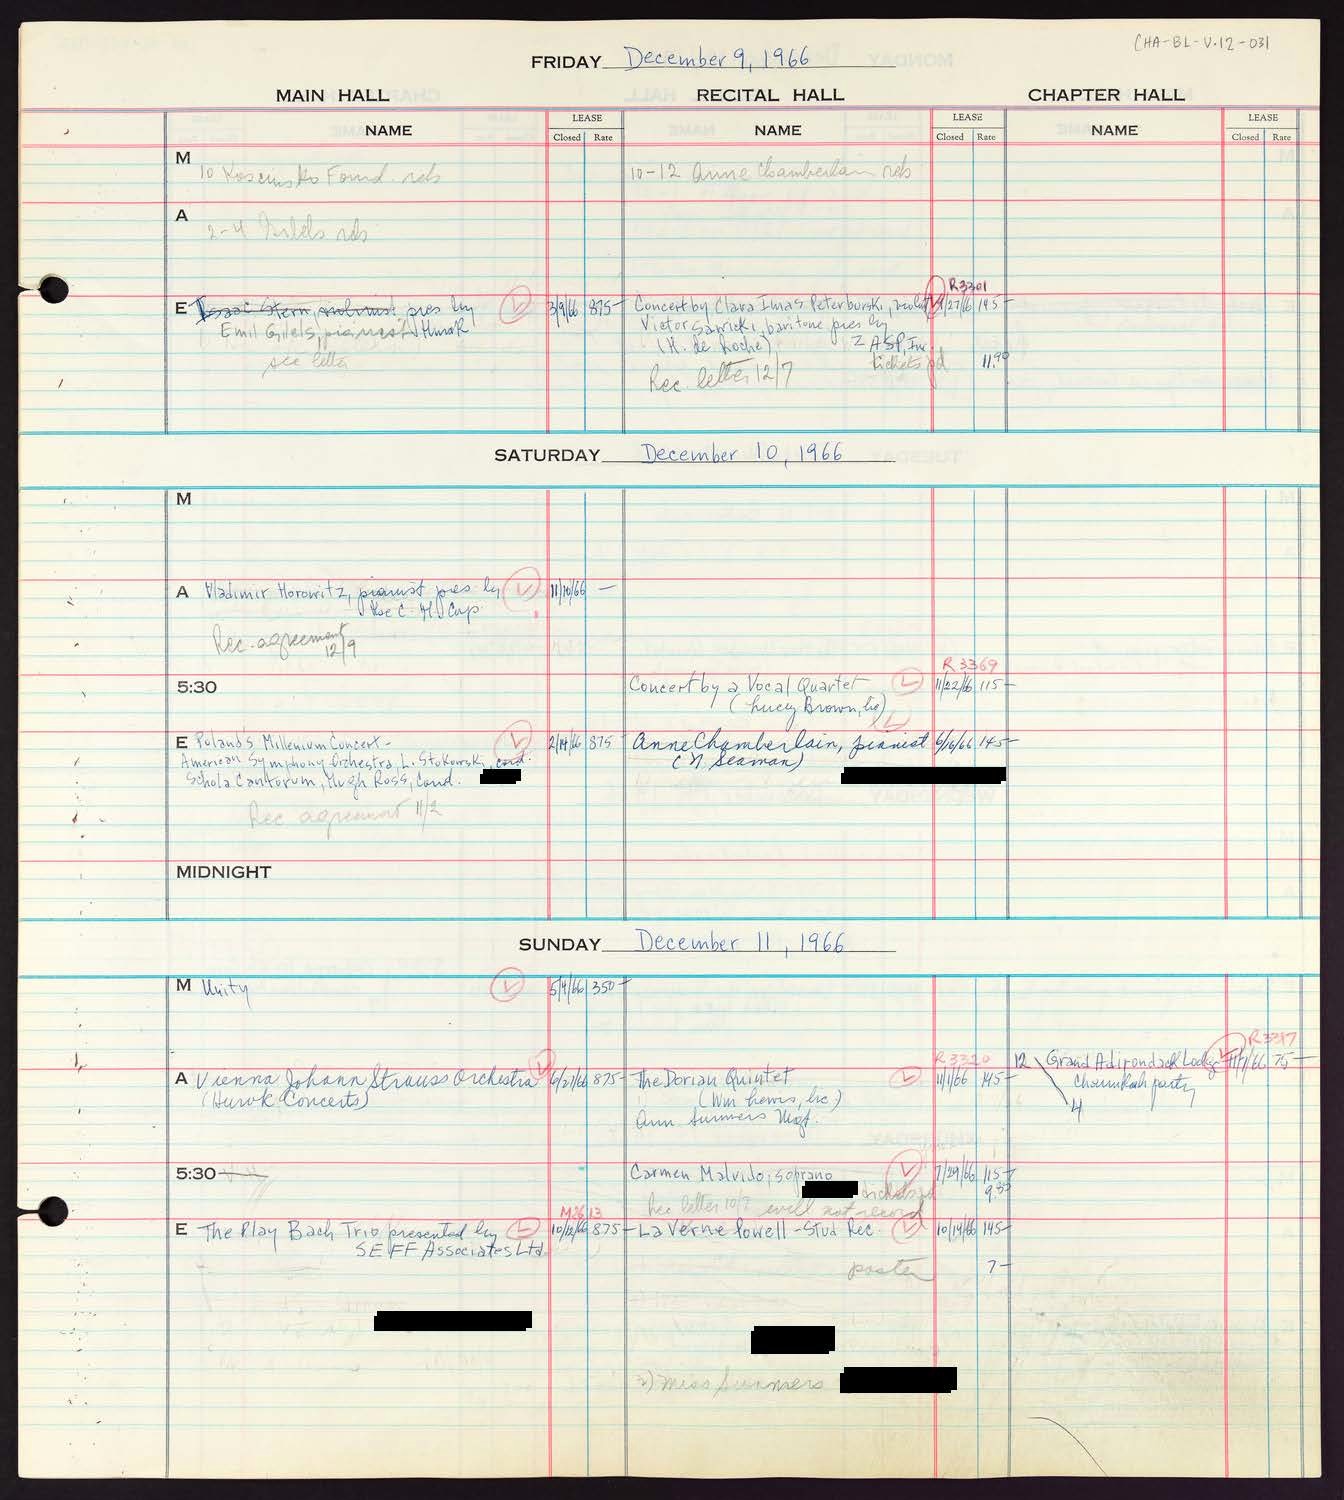 CHA-BL-V.12-031
FRIDAY December 9, 1966
MAIN HALL RECITAL HALL CHAPTER HALL
NAME LEASE Closed Rate NAME LEASE Closed Rate NAME LEASE Closed Rate
M 10 Kosciusko Found. rehs 10-12 Anne Chamberlain rehs
A 2-4 Gilels rehs
R3301
E Isaac Stern, violinist pres by 3/9/66 875- Concert by Clara Imas Peterburski, violinist 1/27/66 145-
Emil Gilels, pianist Hurok Victor Sawicki, baritone pres by
see letter (H. de Roche) ZASP, Inc.
tickets pd 11.90
Rec. letter 12/7
SATURDAY December 10, 1966
M
A Vladimir Horowitz, pianist pres by 11/10/66 -
the C.H. Corp.
Rec. agreement
12/9
R 3369
5:30 Concert by a Vocal Quartet 11/22/66 115-
(Lucy Brown, lic)
E Poland's Millenium Concert- 2/14/66 875- Anne Chamberlain, pianist 6/16/66 145-
American Symphony Orchestra, L. Stokowski, cond. (N. Seaman)
Schola Cantorum, Hugh Ross, Cond.
Rec agreement 11/2
MIDNIGHT
SUNDAY December 11, 1966
M Unity 5/4/66 350-
R3317
R 3320 12 Grand Adirondack Lodge 11/1/66 75-
A Vienna Johann Strauss Orchestra 6/21/66 875- The Dorian Quintet 11/1/66 145- Channukah party
(Hurok Concerts) (Wm Lewis, lic.) 4
Ann Summers Mgt.
5:30 Carmen Malvido, soprano 7/29/66 115-
Rec letter 10/7 will not record tickets pd 9.35
M2613
E The Play Bach Trio, presented by 10/12/66 875- La Verne Powell - Stud Rec. 10/14/66 145-
SEFF Associates Ltd
poster 7-
2) Miss Summers